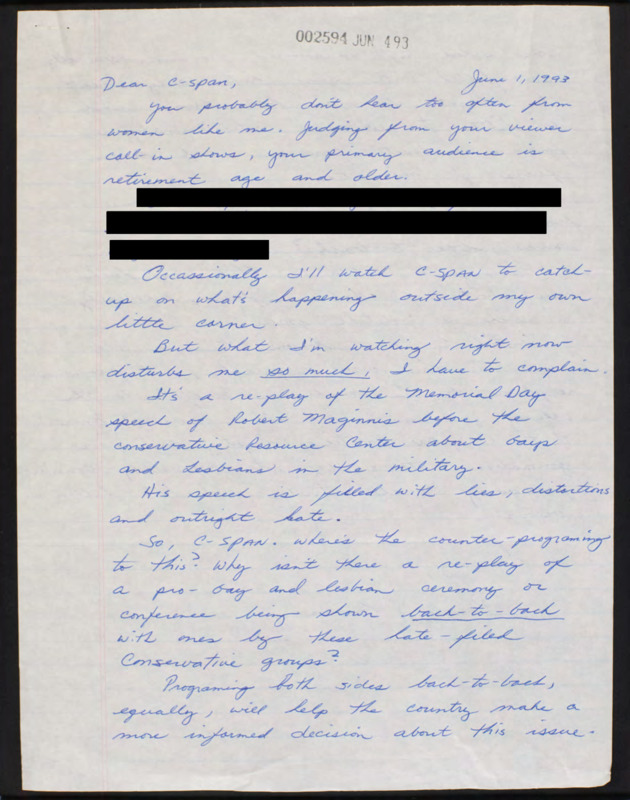 002594 JUN 4 93
Dear C-SPAN, June 1, 1993
You probably don't hear too often from
women like me. Judging from your viewer
call-in shows, your primary audience is
retirement age and older.
Occassionally I'll watch C-SPAN to catch-
up on what's happening outside my own
little corner.
But what I'm watching right now
disturbs me so much, I have to complain.
It's a re-play of the Memorial Day
speech of Robert Maginnis before the
conservative Resource Center about Gays
and Lesbians in the military.
His speech is filled with lies, distortions
and outright hate.
So, C-SPAN. where's the counter-programing
to this? Why isn't there a re-play of
a pro-Gay and lesbian ceremony or
conference being shown back-to-back
with ones by these hate-filed
Conservative groups?
Programing both sides back-to-back,
equally, will help the country make a
more informed decision about this issue.